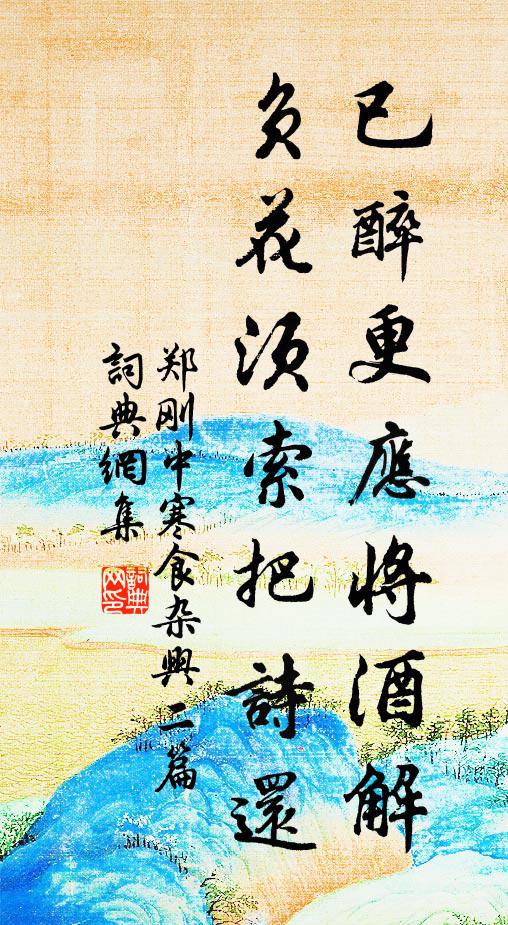 已醉更應將酒解
負花須索把詩還
郑刚中寒食杂興二篇
詞典網集
詞典网印